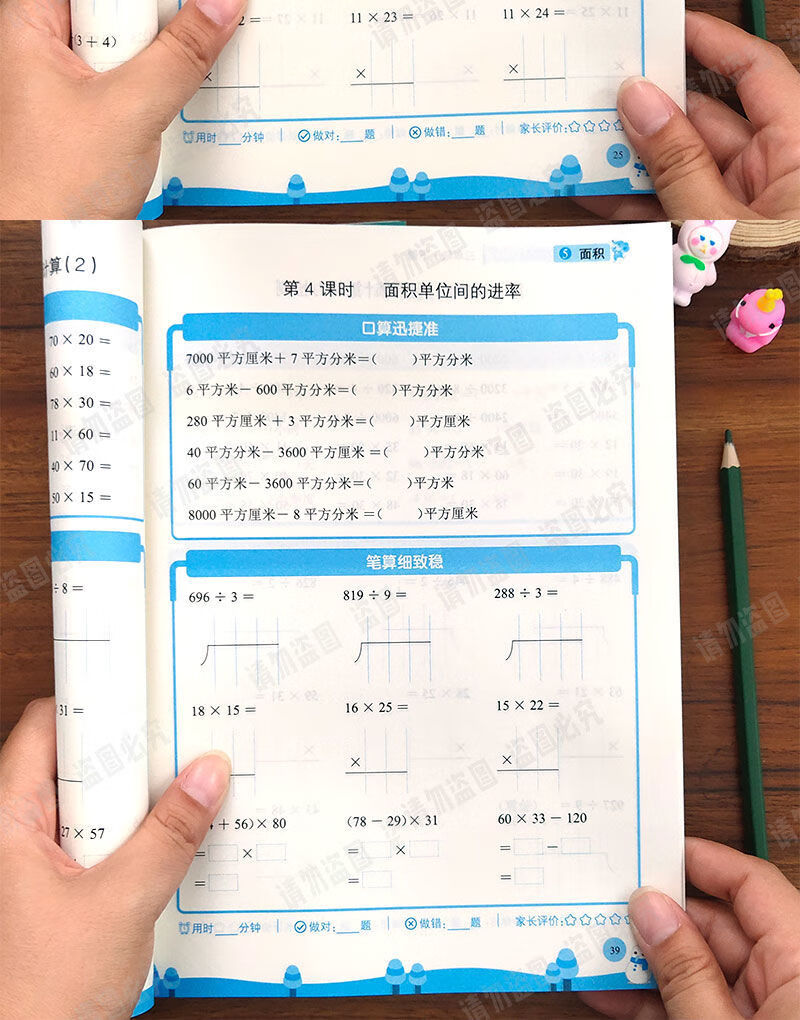 (3 + 4)
2 =
11 × 23 =
11 × 24 =
×
×
×
用时___分钟
做对:___题
做错:___题
家长评价:☆☆☆☆
25
计算(2)
70 × 20 =
60 × 18 =
78 × 30 =
11 × 60 =
40 × 70 =
50 × 15 =
÷ 8 =
31 =
27 × 57
5 面积
第 4 课时 面积单位间的进率
口算迅捷准
7000 平方厘米+ 7 平方分米=( )平方分米
6 平方米- 600 平方分米=( )平方分米
280 平方厘米 + 3 平方分米=( )平方厘米
40 平方分米- 3600 平方厘米 =( )平方分米
60 平方米- 3600 平方分米=( )平方米
8000 平方厘米- 8 平方分米 =( )平方厘米
笔算细致稳
696 ÷ 3 = 819 ÷ 9 = 288 ÷ 3 =
18 × 15 = 16 × 25 = 15 × 22 =
× ×
+ 56) × 80 (78 - 29) × 31 60 × 33 - 120
= □ × □ = □ × □ = □ - □
= □ = □ = □
用时___分钟 做对:___题 做错:___题 家长评价:☆☆☆☆☆
39
请勿盗图 盗图必究